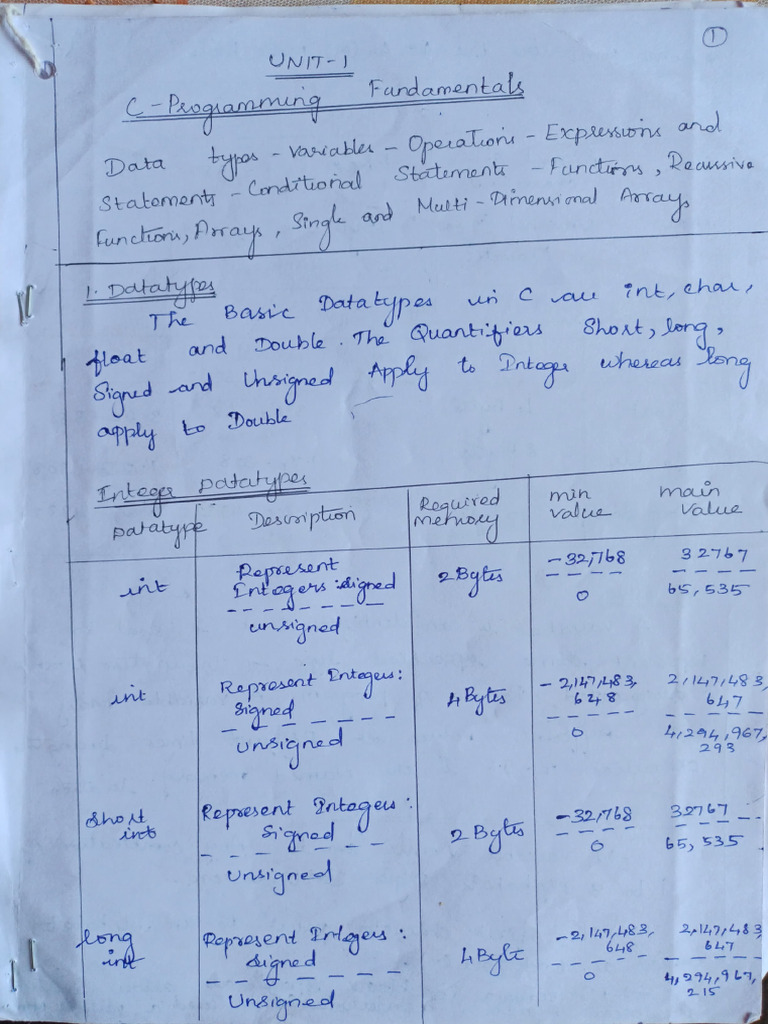 1
UNIT-1
C-Programming Fundamentals
Data types - Variables - Operations - Expressions and
Statements - Conditional Statements - Functions, Recursive
Functions, Arrays, Single and Multi-Dimensional Arrays
1. Datatypes
The Basic Datatypes in C are int, char,
float and Double. The Quantifiers Short, long,
Signed and Unsigned Apply to Integer whereas long
apply to Double
Integer Datatypes
Datatype Description Required Memory min value main value
int Represent Integers: signed 2 Bytes -32,768 32767
unsigned 0 65,535
int Represent Integers: signed 4 Bytes -2,147,483,648 2,147,483,647
unsigned 0 4,294,967,293
short int Represent Integers: signed 2 Bytes -32,768 32767
unsigned 0 65,535
long int Represent Integers: signed 4 Byte -2,147,483,648 2,147,483,647
Unsigned 0 4,294,967,215